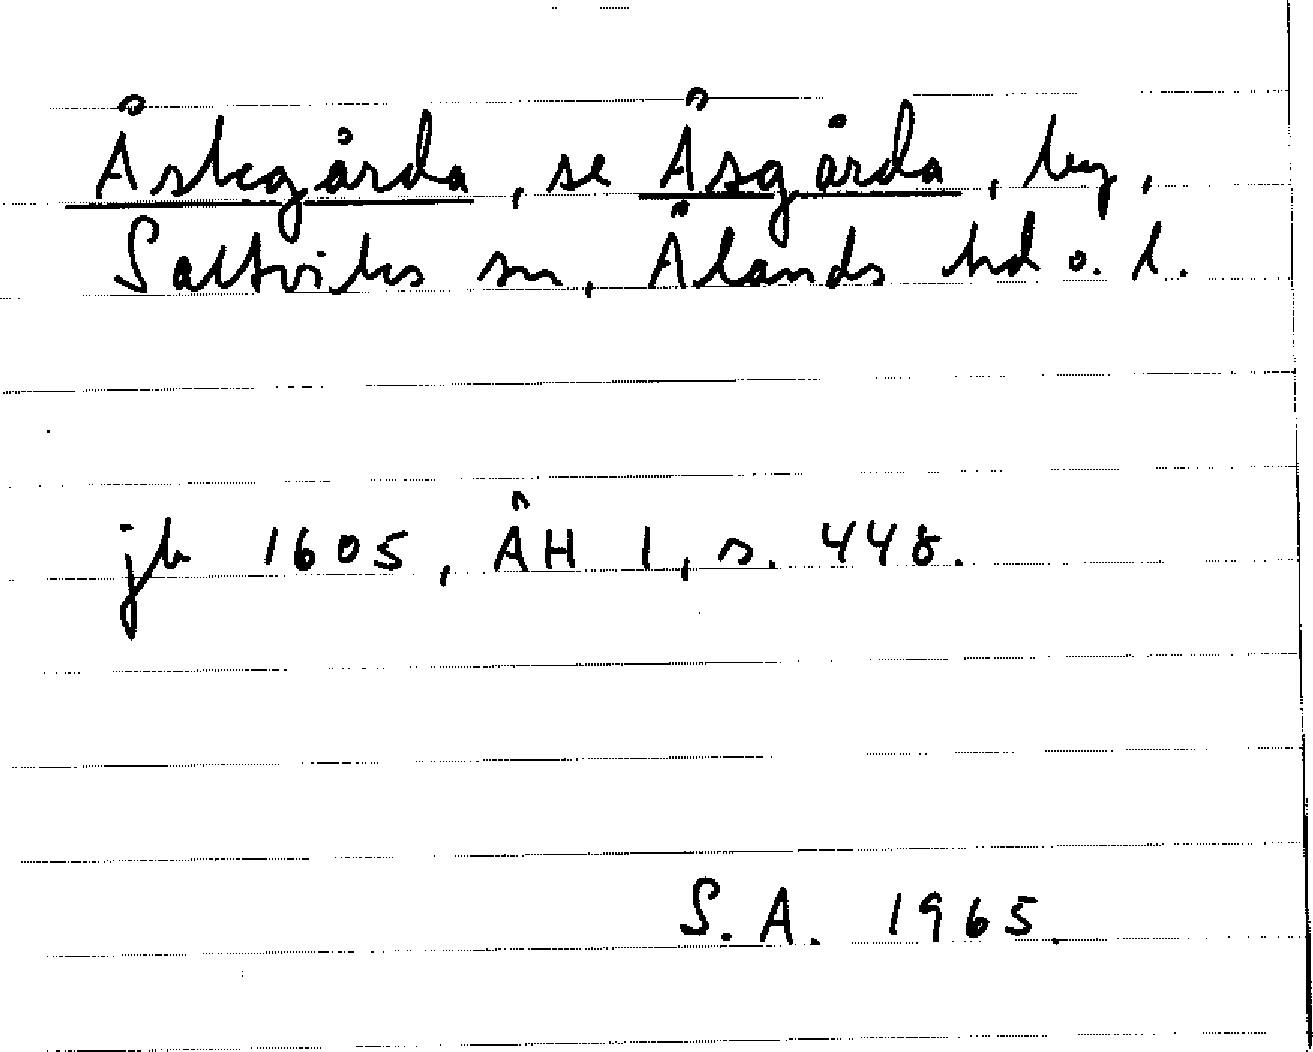 Åskegårda, se Åsgårda, by,
Saltviks sn, Ålands hd o. l.
jb 1605, ÅH 1, s. 448.
S. A. 1965.